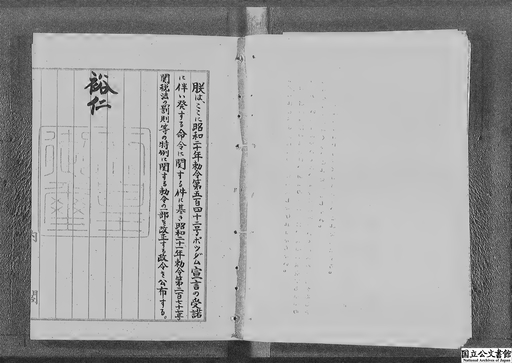 朕は、ここに昭和二十年勅令第五百四十二号ポツダム宣言の受諾
に伴い発する命令に関する件に基く昭和二十一年勅令第二百七十七号
関税法の罰則等の特例に関する勅令の一部を改正する政令を公布する。
裕仁
国立公文書館
National Archives of Japan